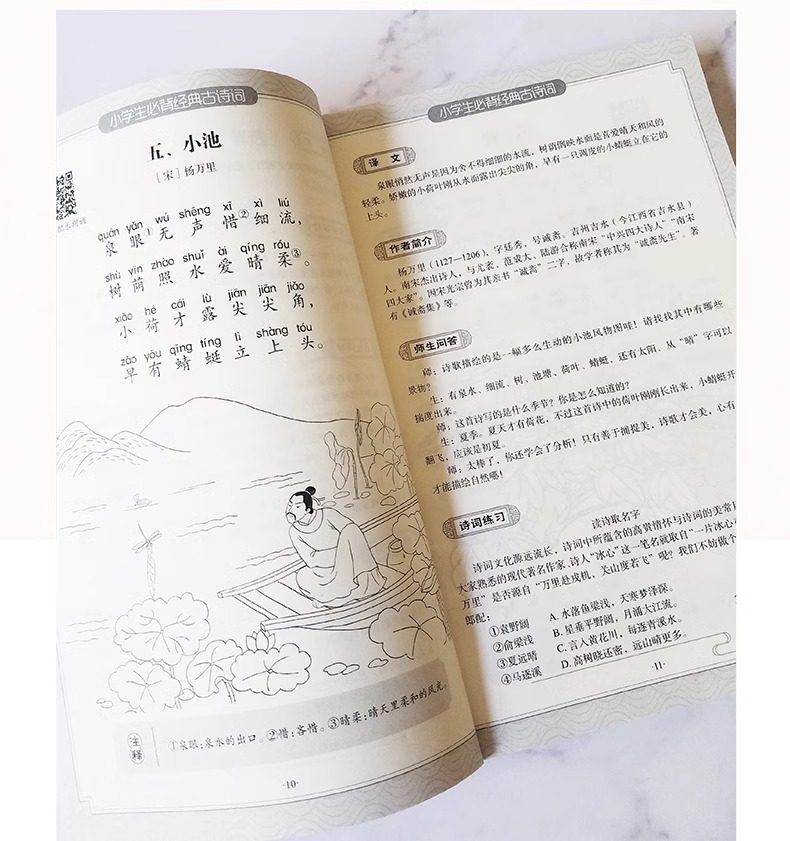 小学生必背经典古诗词
五、小池
[宋] 杨万里
quán yǎn wú shēng xī xì liú
泉眼①无声惜②细流，
shù yīn zhào shuǐ ài qíng róu
树荫照水爱晴柔③。
xiǎo hé cái lù jiān jiān jiǎo
小荷才露尖尖角，
zǎo yǒu qīng tíng lì shàng tóu
早有蜻蜓立上头。
注释
①泉眼：泉水的出口。②惜：吝惜。③晴柔：晴天里柔和的风光。
·10·
小学生必背经典古诗词
译文
泉眼悄然无声是因为舍不得细细的水流，树荫倒映水面是喜爱晴天和风的
轻柔。娇嫩的小荷叶刚从水面露出尖尖的角，早有一只调皮的小蜻蜓立在它的
上头。
作者简介
杨万里（1127—1206），字廷秀，号诚斋。吉州吉水（今江西省吉水县）
人。南宋杰出诗人，与尤袤、范成大、陆游合称南宋“中兴四大诗人”“南宋
四大家”。因宋光宗曾为其亲书“诚斋”二字，故学者称其为“诚斋先生”。著
有《诚斋集》等。
师生问答
师：诗歌描绘的是一幅多么生动的小池风物图哇！请找找其中有哪些
景物？
生：有泉水、细流、树、池塘、荷叶、蜻蜓，还有太阳，从“晴”字可以
揣度出来。
师：这首诗写的是什么季节？你是怎么知道的？
生：夏季。夏天才有荷花，不过这首诗中的荷叶刚刚长出来，小蜻蜓开
翻飞，应该是初夏。
师：太棒了，你还学会了分析！只有善于捕捉美，诗歌才会美，心有
才能描绘自然哪！
诗词练习
读诗取名字
诗词文化源远流长，诗词中所蕴含的高贵情怀与诗词的美常
大家熟悉的现代著名作家、诗人“冰心”这一笔名就取自“一片冰心
万里”是否源自“万里赴戎机，关山度若飞”呢？我们不妨做个
郎配：
①袁野阔 A. 水落鱼梁浅，天寒梦泽深。
②俞梁浅 B. 星垂平野阔，月涌大江流。
③夏远晴 C. 言入黄花川，每逐青溪水。
④马逐溪 D. 高树晓还密，远山晴更多。
·11·